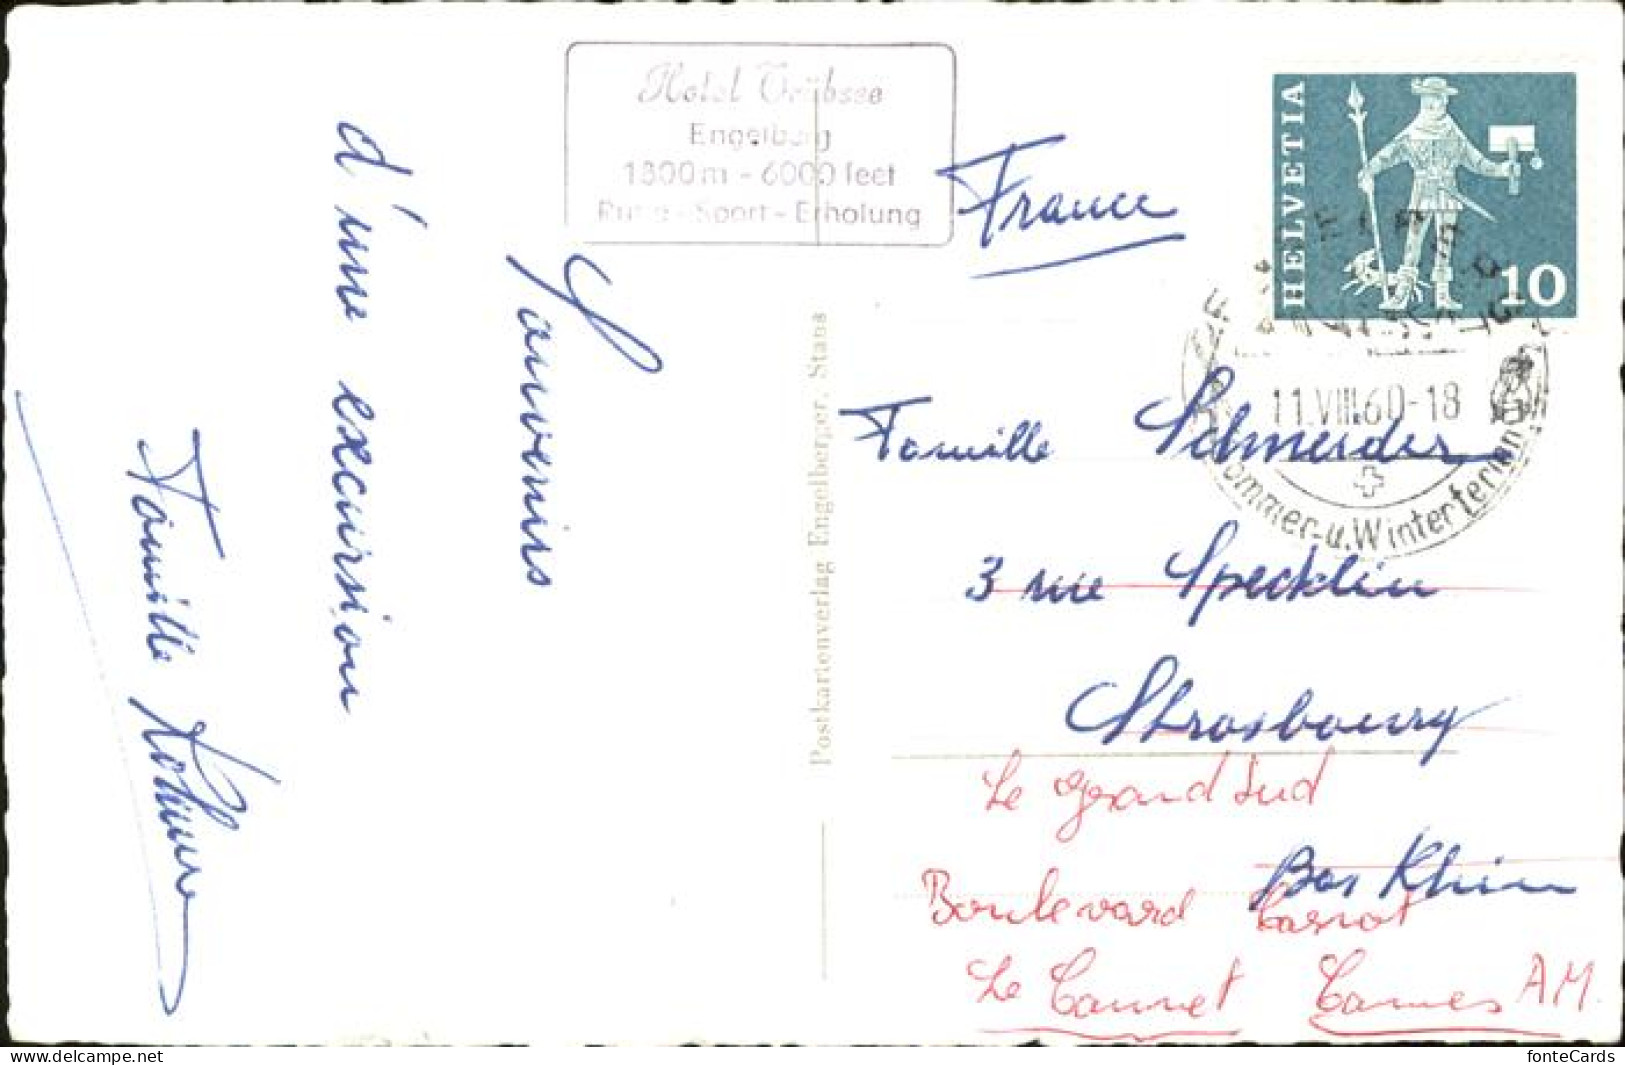 Hotel Trübsee
Engelberg
1800m - 6000 feet
Ruhe - Sport - Erholung
HELVETIA
10
11.VIII.60-18
Sommer- u. Winterferien
Souvenirs
d'une excursion
Famille
Postkartenverlag Engelberger, Stans
France
Famille Schneider
3 rue Specklin
Strasbourg
Bas Rhin
Le Grand Sud
Boulevard Carnot
Le Cannet Cannes AM.
delcampe.net
fonteCards